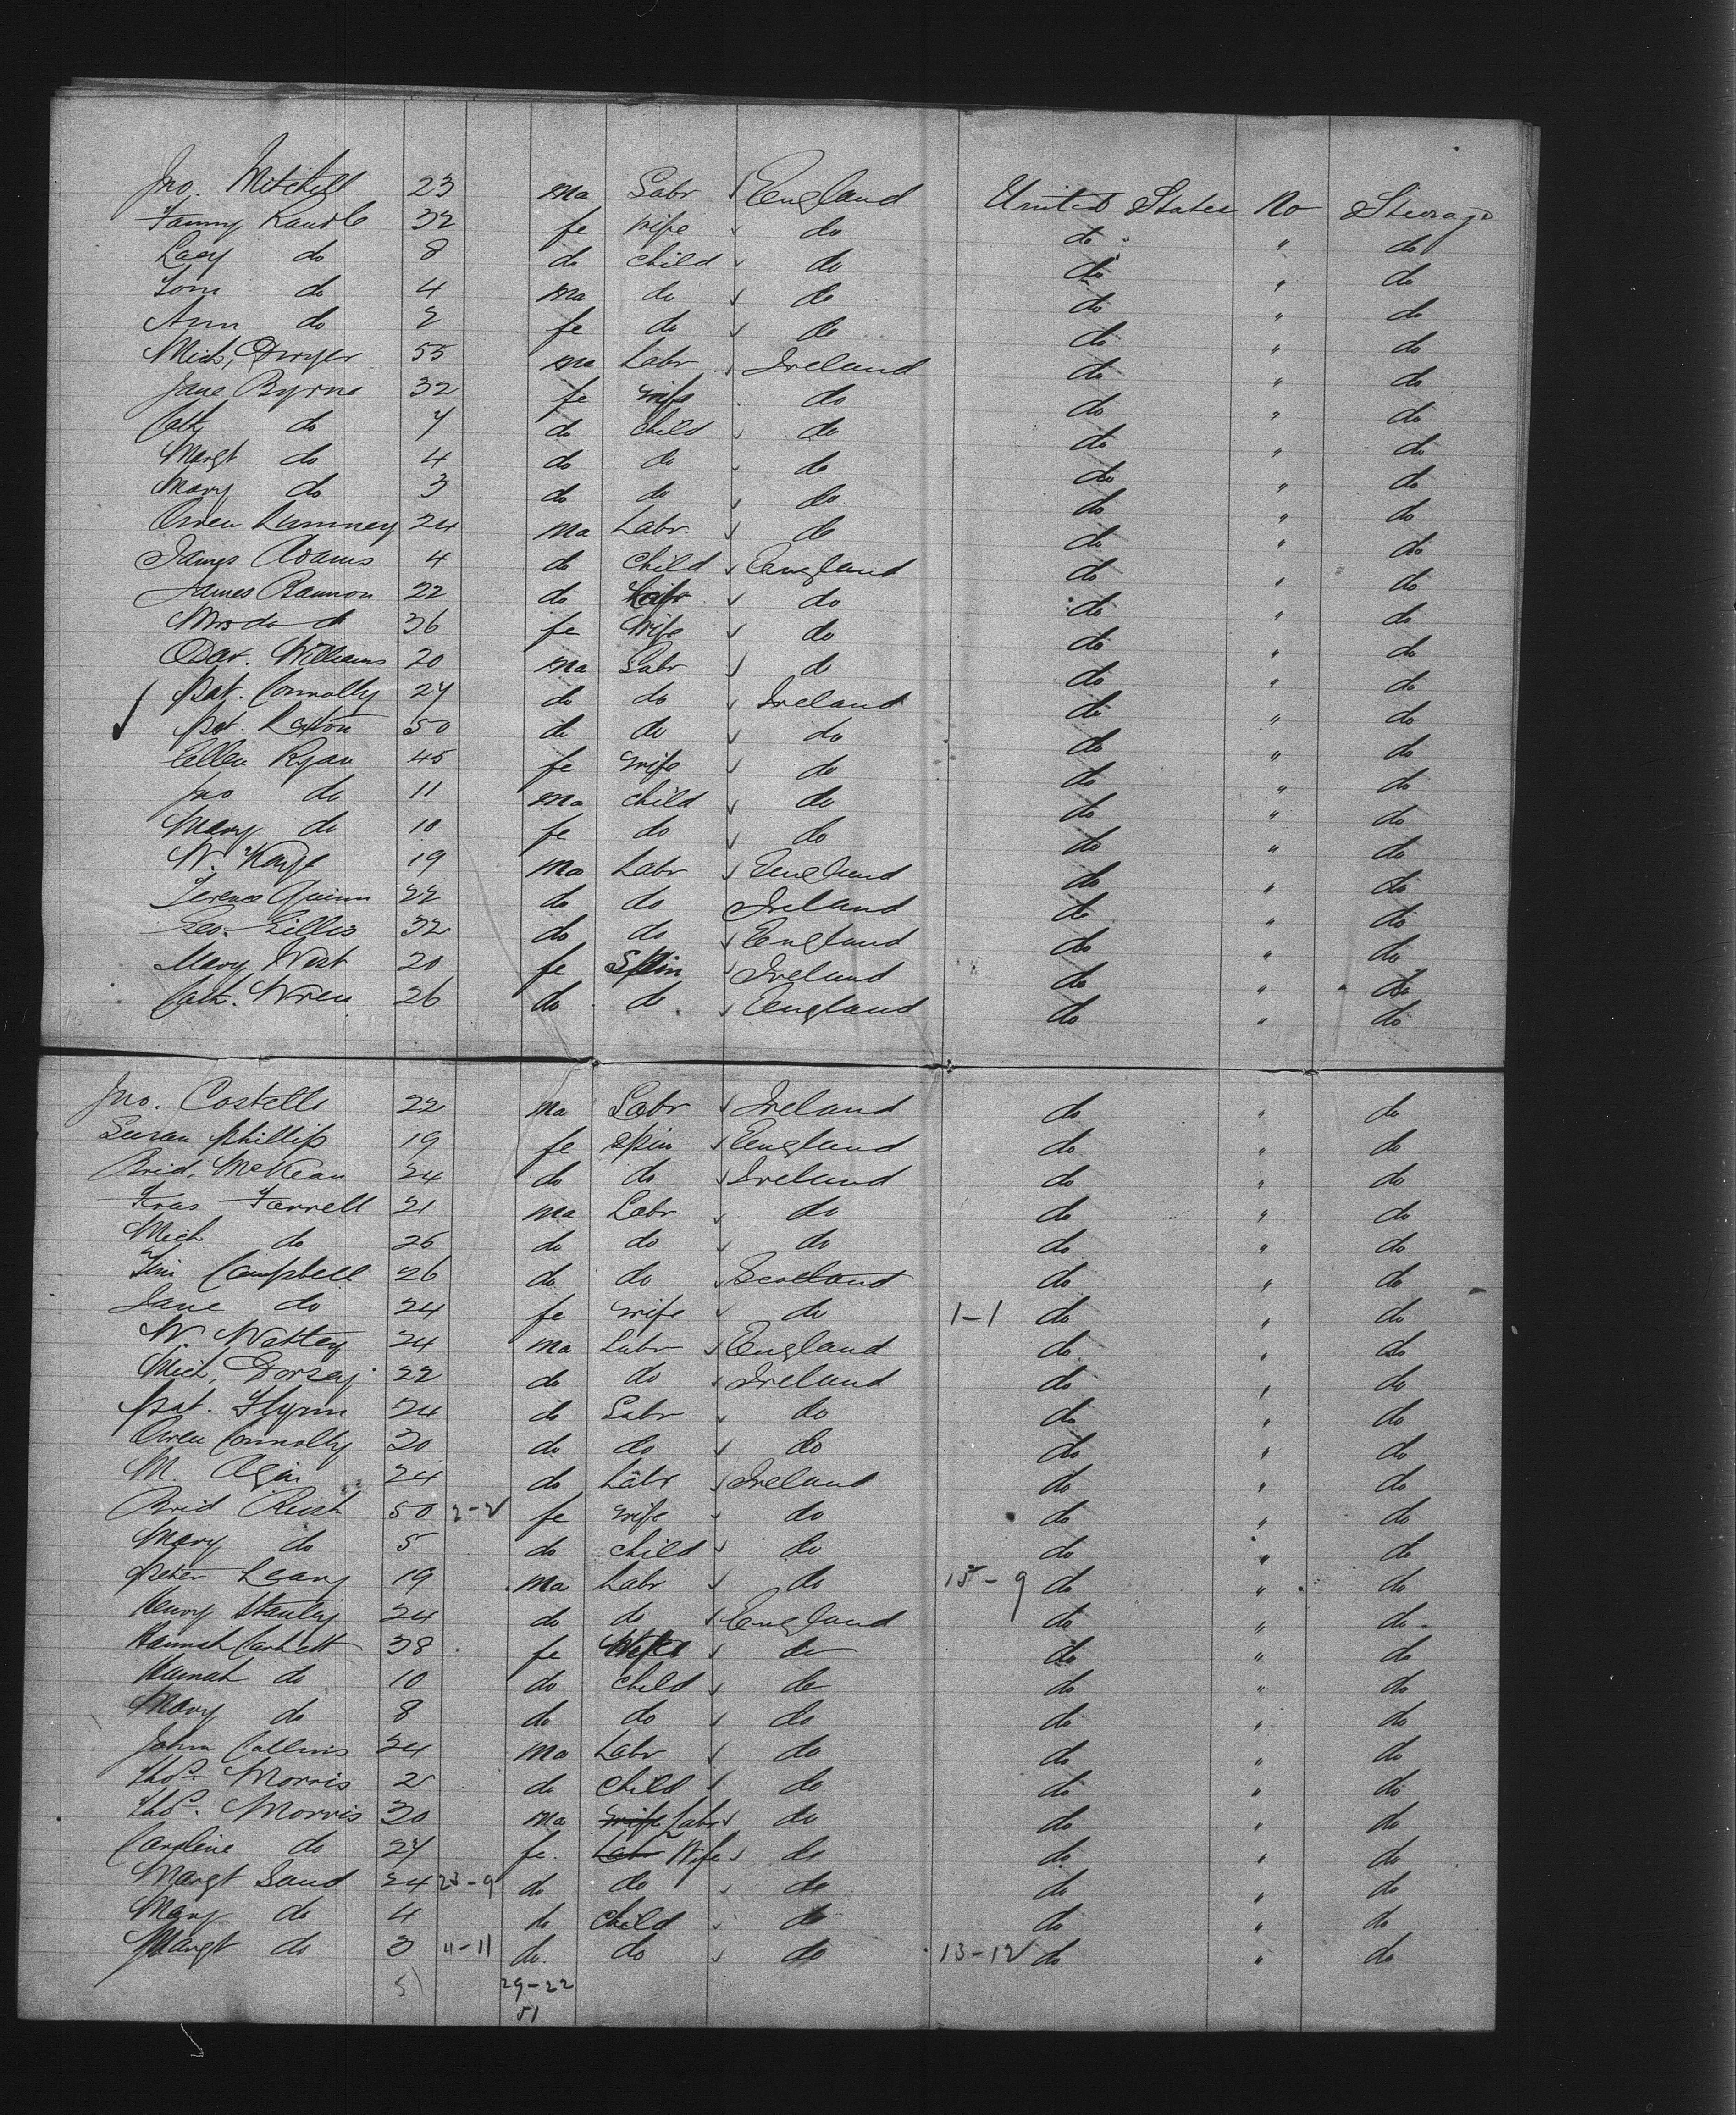 Jno. Mitchell 23 ma Labr England United States No Steerage
Fanny Randle 32 fe wife do do " do
Lacy do 8 do child do do " do
Tom do 4 ma do do do " do
Ann do 2 fe do do do " do
Mich, Dwyer 55 ma Labr Ireland do " do
Jane Byrne 32 fe wife do do " do
Cath do 7 do child do do " do
Margt do 4 do do do do " do
Mary do 3 do do do do " do
Owen Lumney 24 ma Labr. do do " do
James Adams 4 do child England do " do
James Bannon 22 do Labr do do " do
Mrs do do 36 fe Wife do do " do
Dav. Williams 20 ma Labr do do " do
Pat. Connolly 27 do do Ireland do " do
Pat. 50 do do do do " do
Ellen Ryan 45 fe wife do do " do
Jno do 11 ma child do do " do
Mary do 10 fe do do do " do
W. Kaye 19 ma Labr England do " do
Terence Quinn 22 do do Ireland do " do
Geo. Gillis 32 do do England do " do
Mary West 20 fe Spin Ireland do " do
Cath. Wren 26 do do England do " do
Jno. Costello 22 ma Labr Ireland do " do
Susan Phillips 19 fe spin England do " do
Brid, McKean 24 do do Ireland do " do
Fras Farrell 21 ma Labr do do " do
Mich do 26 do do do do " do
Jim Campbell 26 do do Scotland do " do
Jane do 24 fe wife do 1-1 do " do
W. 24 ma Labr England do " do
Mich, Dorsey 22 do do Ireland do " do
Pat. Flynn 24 do Labr do do " do
Owen Connolly 30 do do do do " do
M. Agin 24 do Labr Ireland do " do
Brid Rush 50 2-2 fe wife do do " do
Mary do 5 do child do do " do
Peter Leary 19 ma Labr do 15-9 do " do
Henry Stanley 24 do do England do " do
Hannah 38 fe Wife do do " do
Hannah do 10 do child do do " do
Mary do 8 do do do do " do
John Collins 24 ma Labr do do " do
Thos. Morris 2 do child do do " do
Thos. Morris 30 ma wife Labr do do " do
Caroline do 27 fe. Labr Wife do do " do
Margt Sand 24 23-9 do do do do " do
Mary do 4 do child do do " do
Margt do 3 11-11 do. do do 13-12 do " do
51 29-22
51